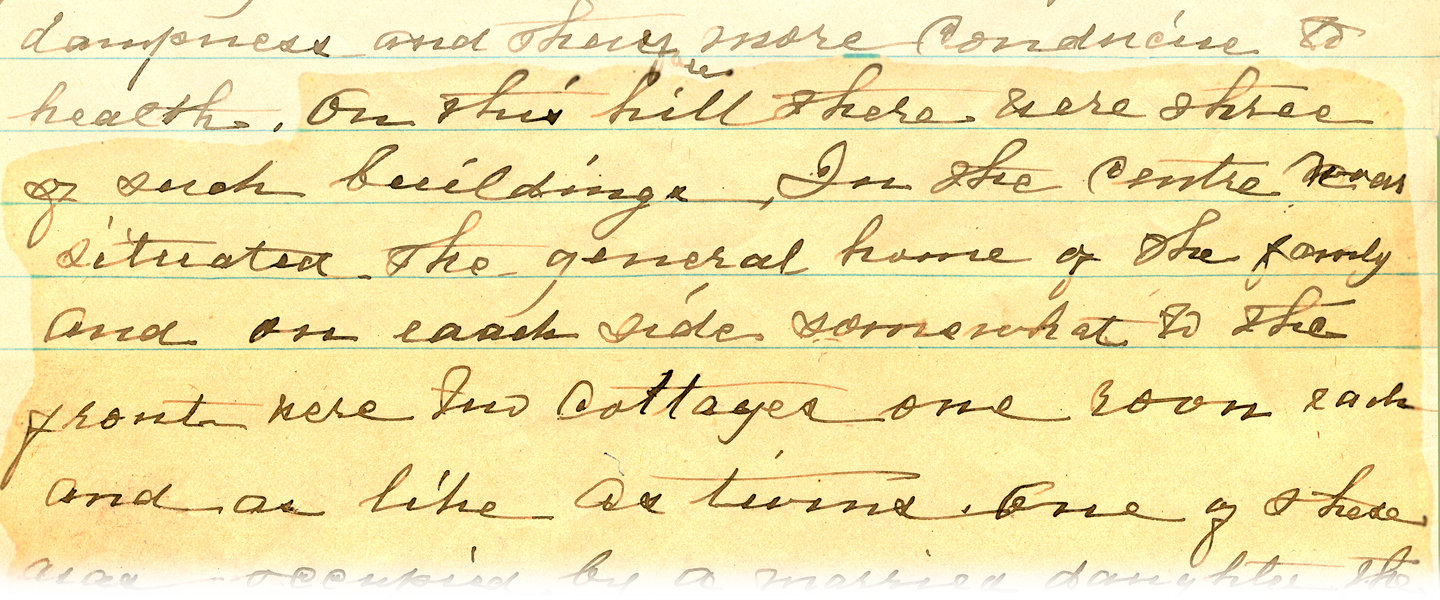 dampness and they are more conducive to
health. On this hill there were three
of such buildings, In the centre was
situated the general home of the family
and on eaach side somewhat to the
front were two cottages one room each
and as like as twins. One of these
was occupied by a married daughter the